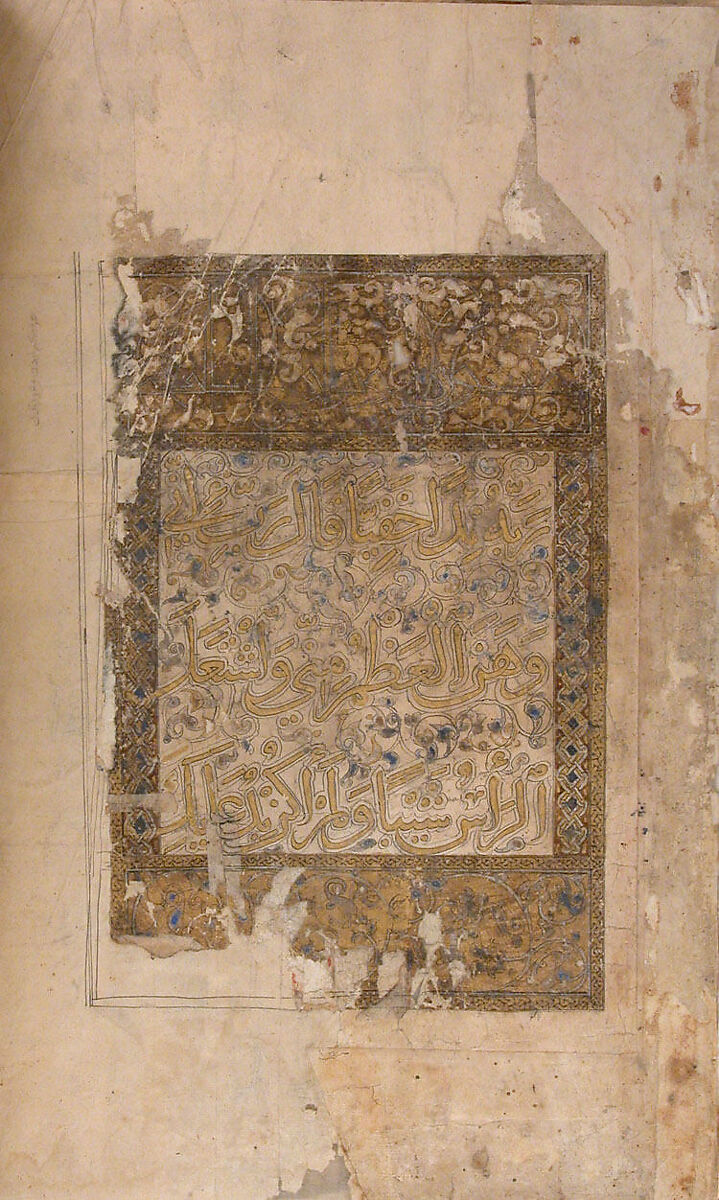 نداء خفيا قال رب إني
وهن العظم مني واشتعل
الرأس شيبا ولم أكن بدعائك